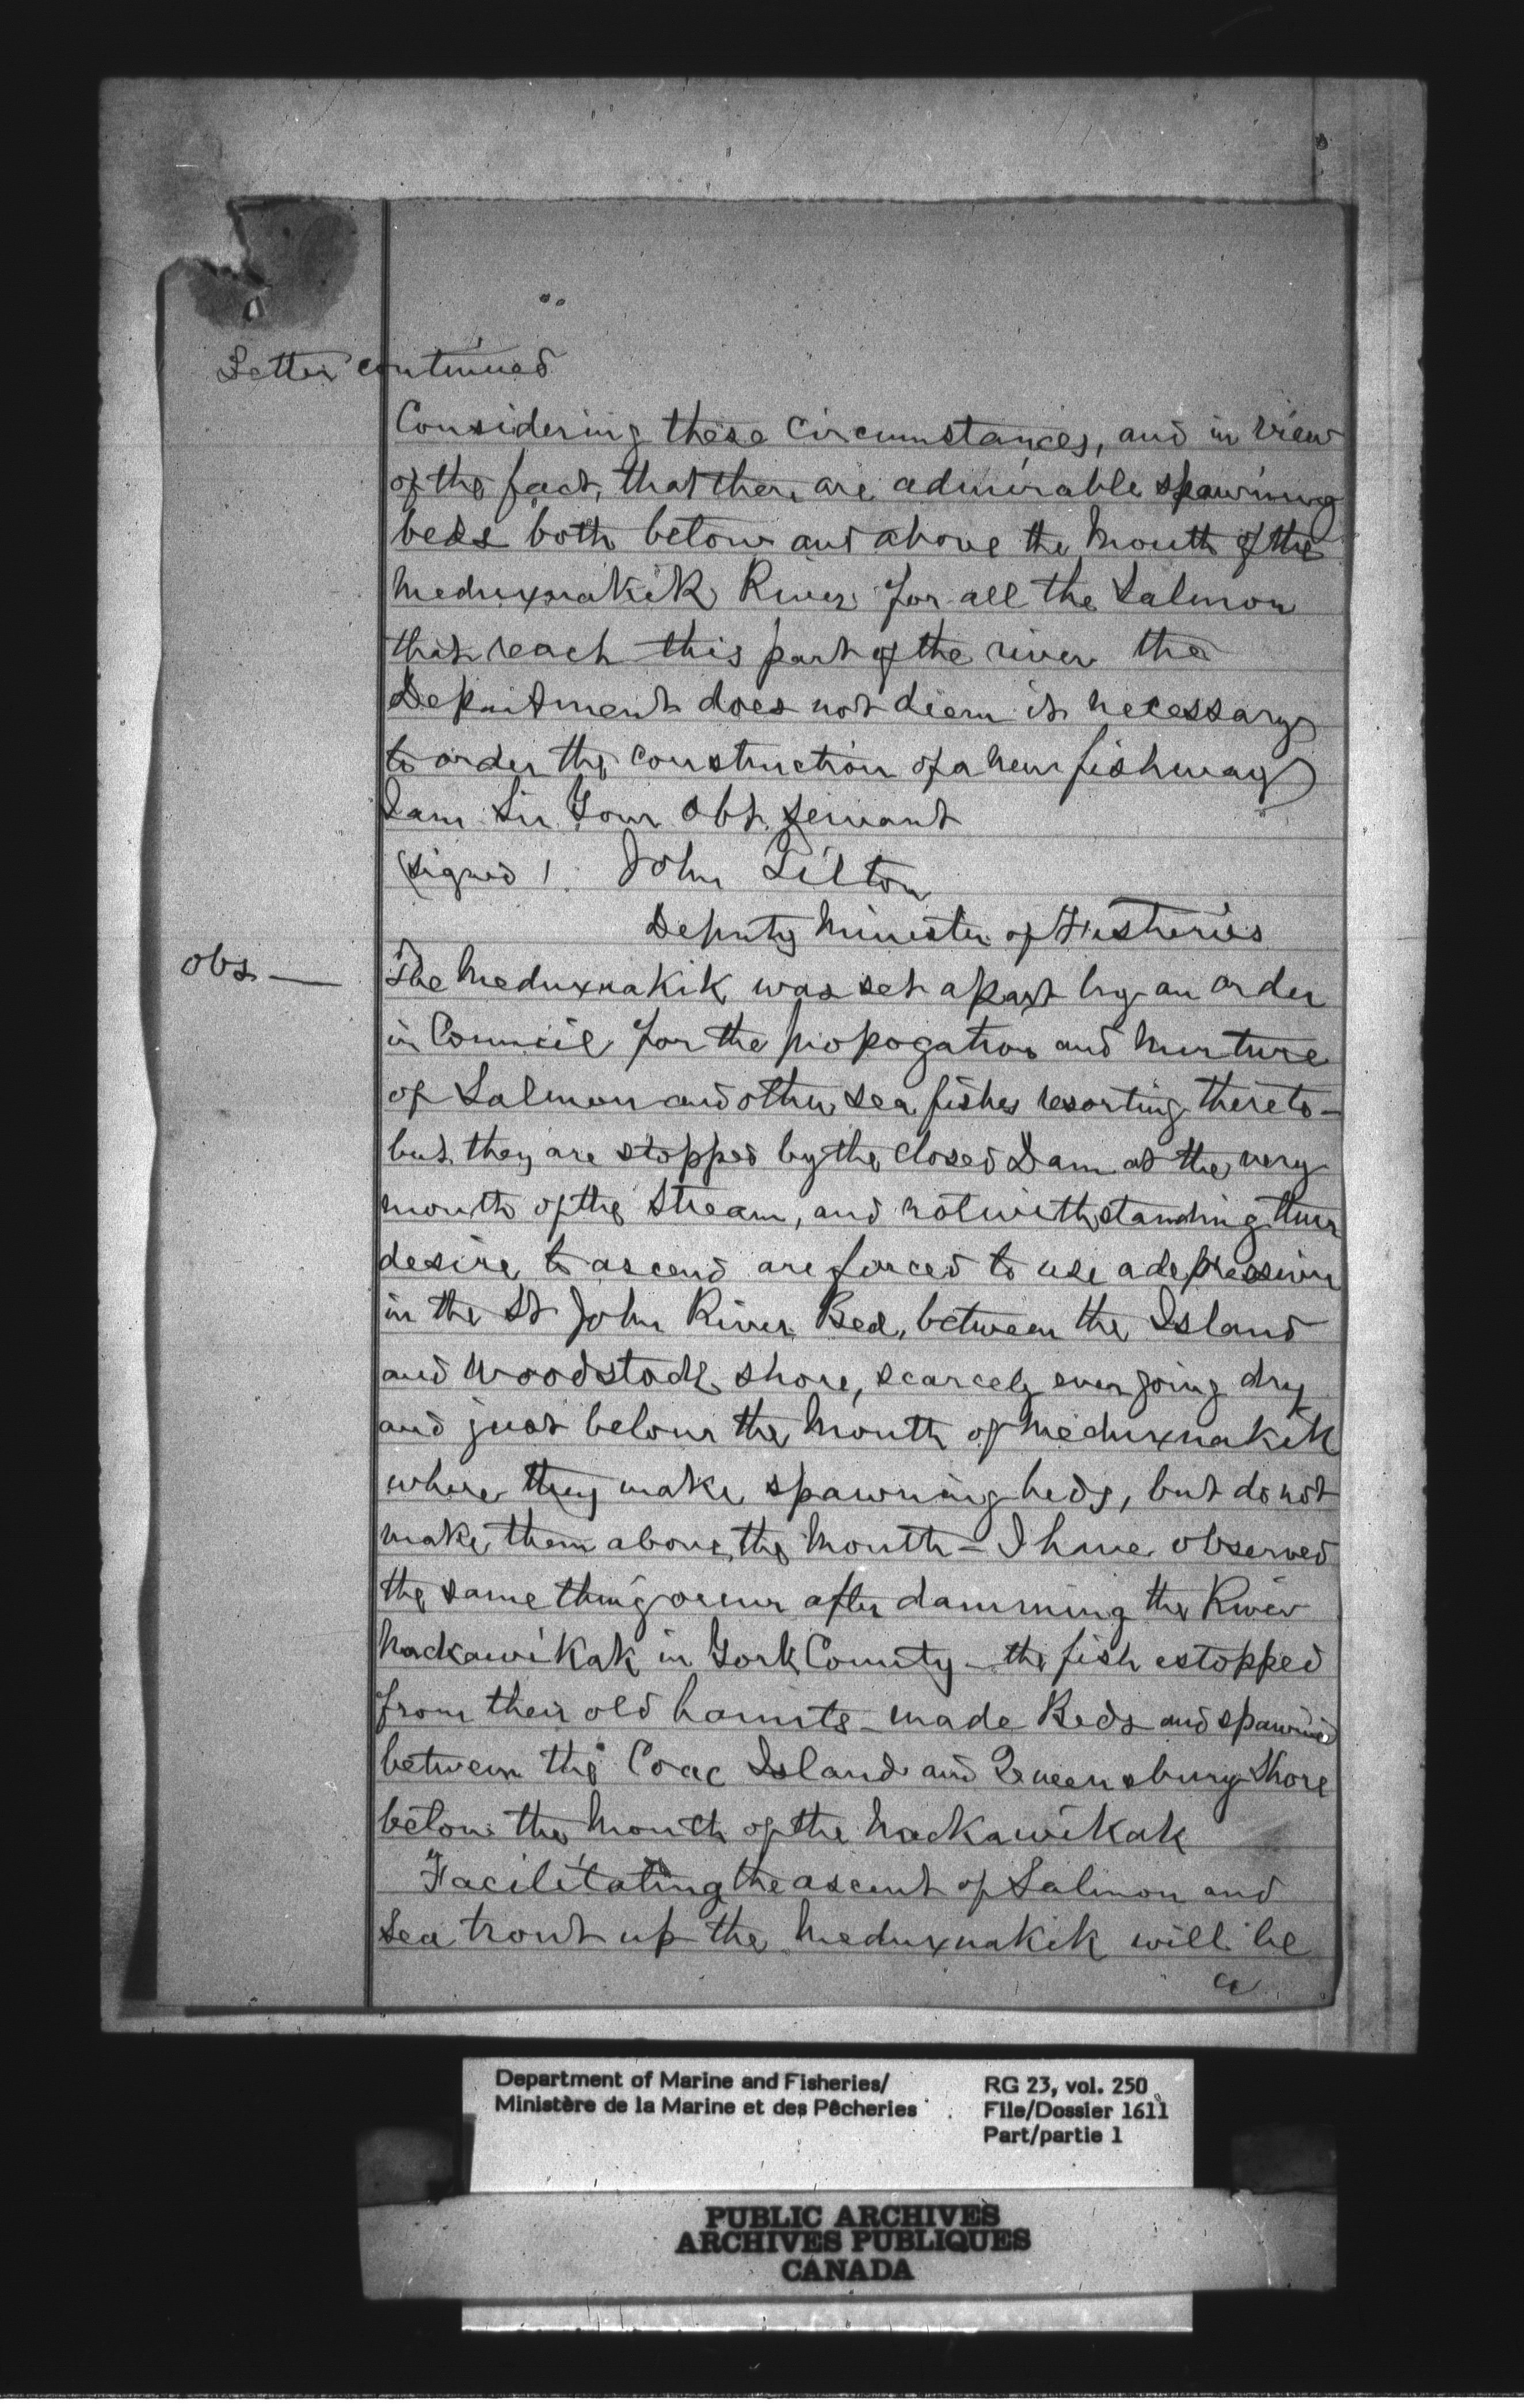 Letter continued
Considering these Circumstances, and in view
of the fact, that there are admirable spawning
beds both below and above the Mouth of the
Meduxnakik River for all the Salmon
that reach this part of the river the
Department does not deem it necessary
to order the construction of a new fishway
I am Sir Your Obt. Servant
(signed) John Tilton
Deputy Minister of Fisheries
Obs — The Meduxnakik was set apart by an order
in Council for the propogation and Nurture
of Salmon and other sea fishes resorting thereto -
but they are stopped by the closed Dam at the very
mouth of the Stream, and notwithstanding their
desire to ascend are forced to use a depression
in the St John River Bed, between the Island
and Woodstock shore, scarcely ever going dry
and just below the Mouth of Meduxnakik
where they make spawning beds, but do not
make them above the Mouth - I have observed
the same thing occur after damming the River
Nackawikak in York County - the fish estopped
from their old haunts - made Beds and spawned
between the Coac Island and Queensbury Shore
below the Mouth of the Nackawikak
Facilitating the ascent of Salmon and
Sea trout up the Meduxnakik will be
a
Department of Marine and Fisheries/
Ministère de la Marine et des Pêcheries
RG 23, vol. 250
File/Dossier 1611
Part/partie 1
PUBLIC ARCHIVES
ARCHIVES PUBLIQUES
CANADA